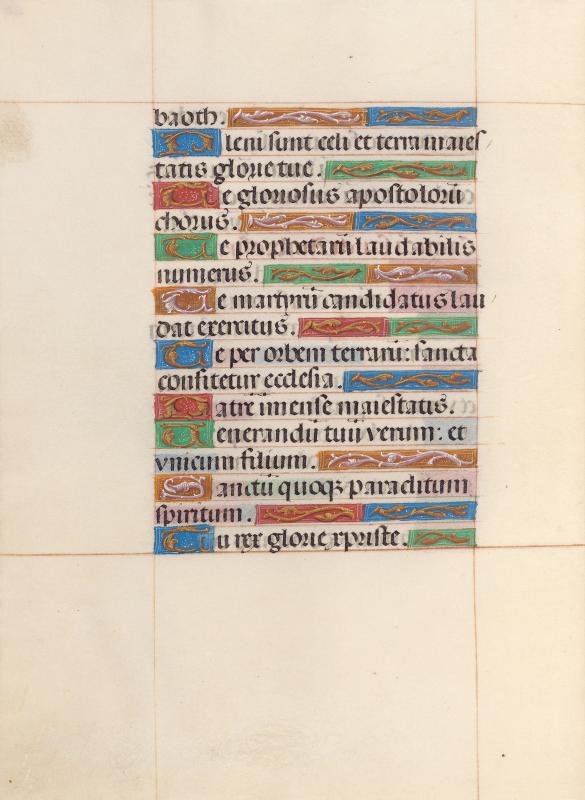 baoth.
Pleni sunt celi et terra maies
tatis glorie tue.
Te gloriosus apostolorū
chorus.
Te prophetarū laudabilis
numerus.
Te martyrū candidatus lau
dat exercitus.
Te per orbem terrarū: sancta
confitetur ecclesia.
Patrē imense maiestatis.
Uenerandū tuū verum: et
vnicum filium.
Sanctū quoqꝫ paraclitum
spiritum.
Tu rex glorie xpriste.